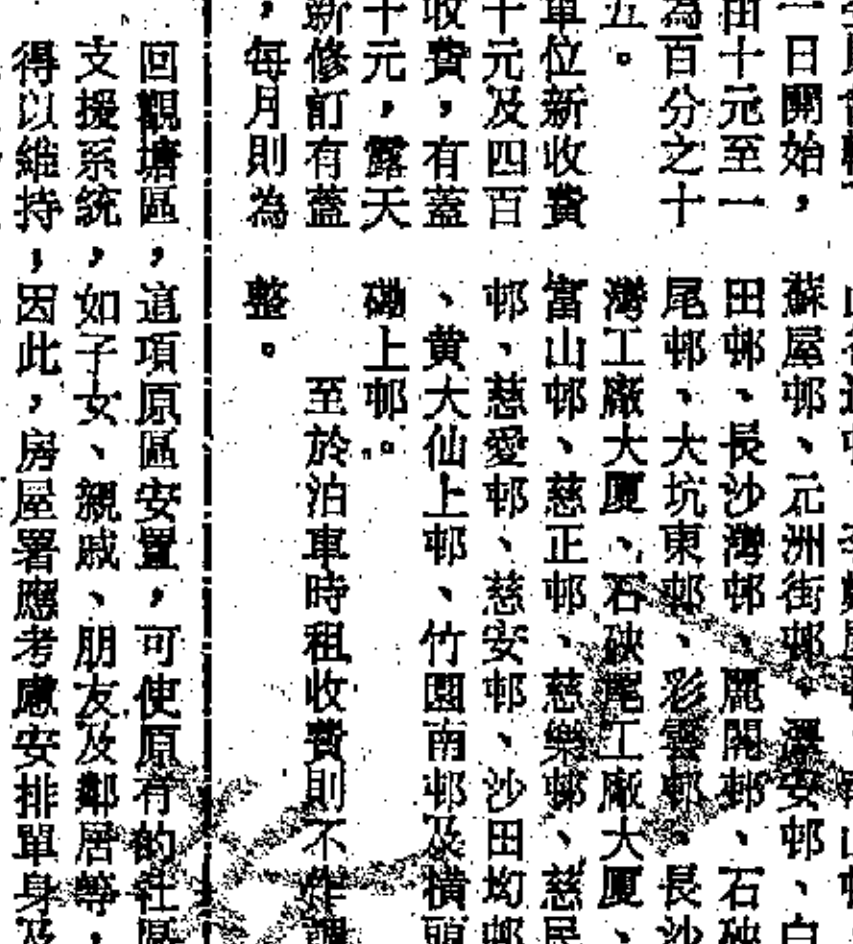 一日開始，
由十元至一
為百分之十
五。
車位新收費
十元及四百
收費，有蓋
十元，露天
新修訂有蓋
，每月則為
蘇屋邨、元洲街邨、澤安邨、白
田邨、長沙灣邨、麗閣邨、石硤
尾邨、大坑東邨、彩雲邨、長沙
灣工廠大廈、石硤尾工廠大廈、
富山邨、慈正邨、慈樂邨、慈民
邨、慈愛邨、慈安邨、沙田坳邨
、黄大仙上邨、竹園南邨及橫頭
磡上邨。
至於泊車時租收費則不作調
整。
回觀塘區，這項原區安置，可使原有的社區
支援系統，如子女、親戚、朋友及鄰居等，
得以維持，因此，房屋署應考慮安排單身及